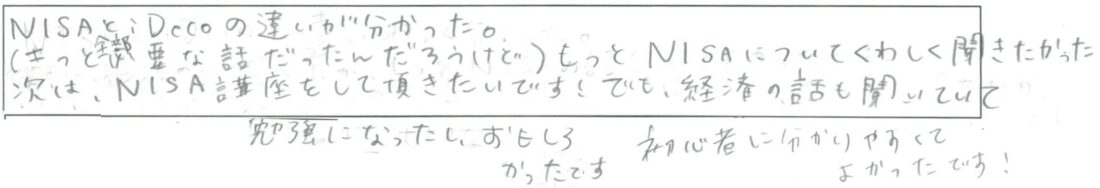 NISAとiDecoの違いが分かった。
(きっと全部重要な話だったんだろうけど)もっとNISAについてくわしく聞きたかった
次は、NISA講座をして頂きたいです!でも、経済の話も聞いていて
勉強になったし、おもしろ 初心者に分かりやすくて
かったです よかったです!